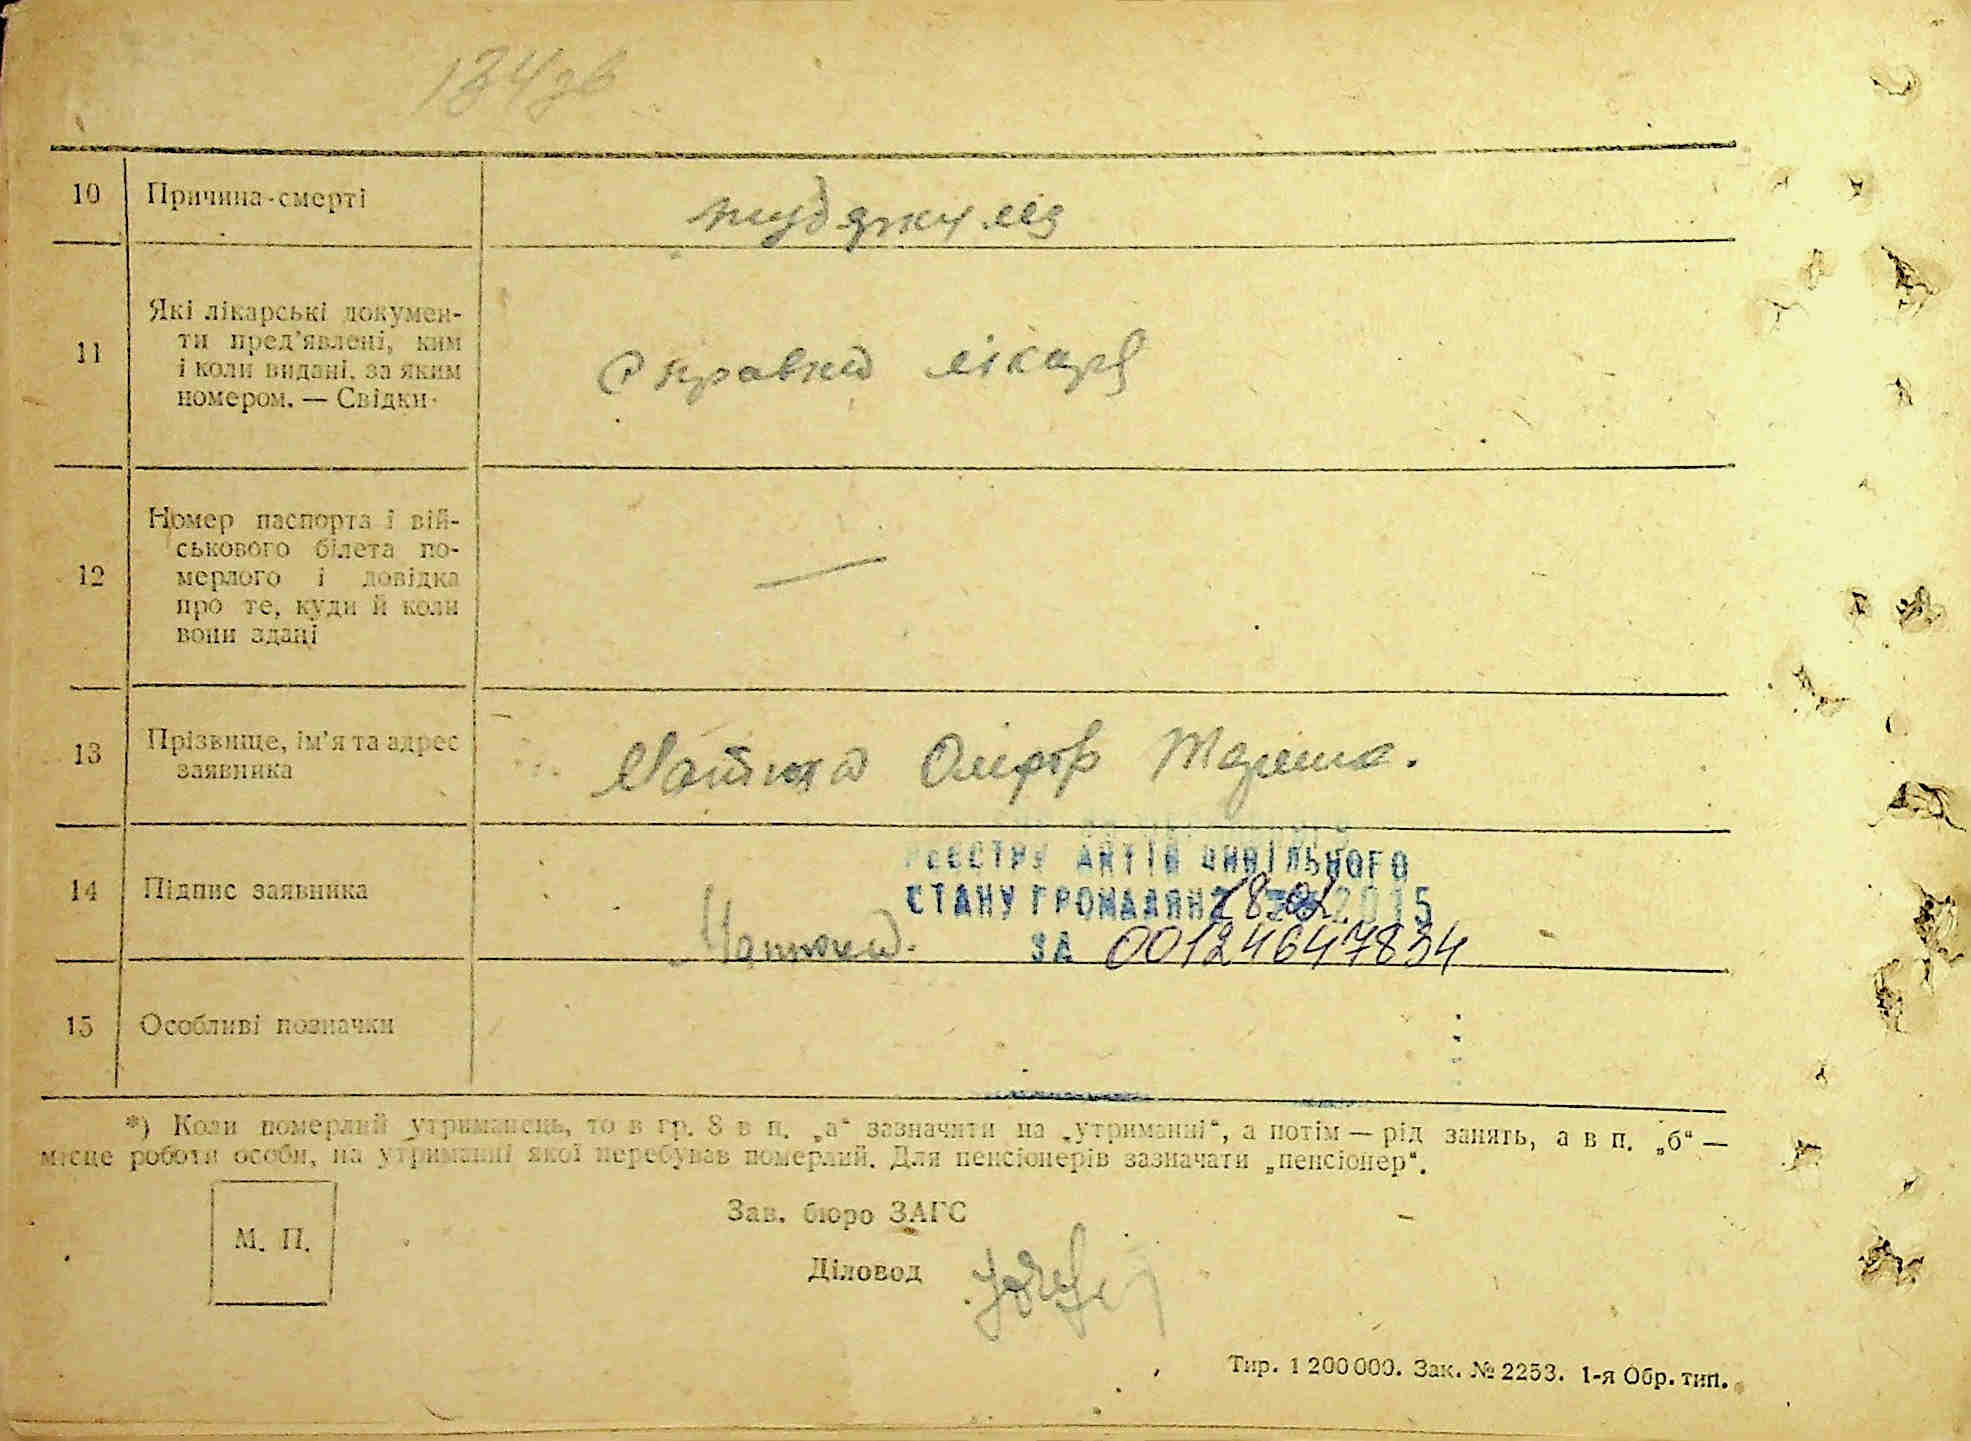 134зв
10 Причина смерті
туберкулез
11 Які лікарські докумен-
ти пред'явлені, ким
і коли видані, за яким
номером. — Свідки
справка лікаря
12 Номер паспорта і вій-
ськового білета по-
мерлого і довідка
про те, куди й коли
вони здані
—
13 Прізвище, ім'я та адрес
заявника
14 Підпис заявника
РЕЄСТРУ АКТІВ ЦИВІЛЬНОГО
СТАНУ ГРОМАДЯН 2015
ЗА 00124647834
15 Особливі позначки
*) Коли померлий утриманець, то в гр. 8 в п. „а“ зазначити на „утриманні“, а потім — рід занять, а в п. „б“ —
місце роботи особи, на утриманні якої перебував померлий. Для пенсіонерів зазначати „пенсіонер“.
М. П.
Зав. бюро ЗАГС
Діловод
Тир. 1 200 000. Зак. № 2253. 1-я Обр. тип.